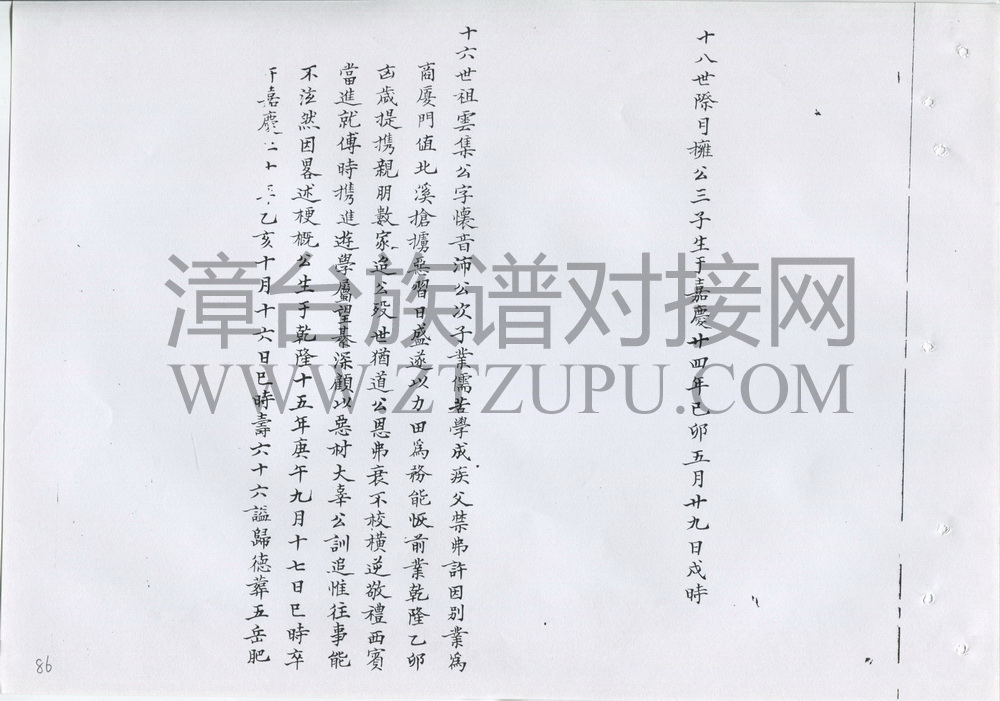 十八世際月擁公三子生于嘉慶廿四年己卯五月廿九日戌時
十六世祖雲集公字懷音沛公次子業儒苦學成疾父禁弗許因別業為
商厦門值北溪搶擄惡習日盛遂以力田為務能恢前業乾隆乙卯
凶歲提携親朋數家迨公殁世猶道公恩弗衰不校橫逆敬禮西賓
當進就傅時携進遊學屬望綦深顧以惡材大辜公訓追惟往事能
不泫然因畧述梗概公生于乾隆十五年庚午九月十七日巳時卒
于嘉慶二十年乙亥十月十六日巳時壽六十六謚歸德葬五岳肥
漳台族谱对接网
WWW.ZTZUPU.COM
86